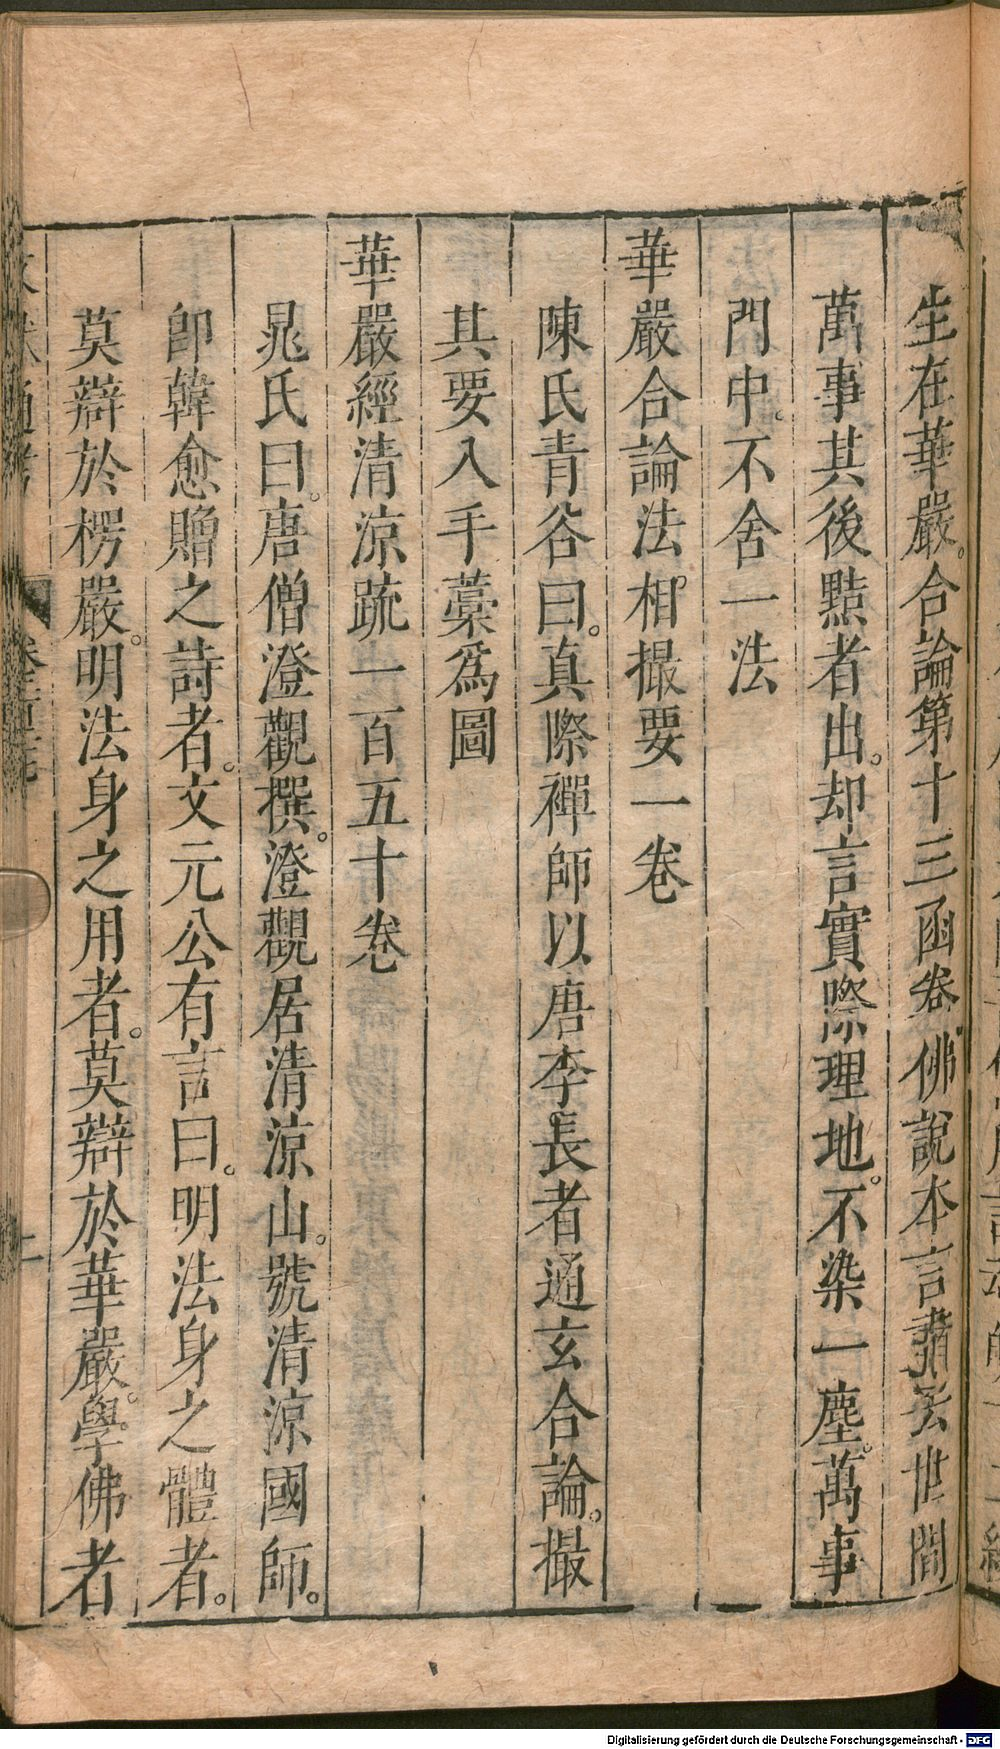 生在華嚴。合論第十三函卷。佛說本言盡去世間
萬事其後黠者出。却言實際理地。不染一塵。萬事
門中。不舍一法
華嚴合論法相撮要一卷
陳氏青谷曰。真際禪師以唐李長者通玄合論。撮
其要入手藁爲圖
華嚴經清涼疏一百五十卷
晁氏曰。唐僧澄觀撰。澄觀居清涼山。號清涼國師。
卽韓愈贈之詩者。文元公有言曰。明法身之體者。
莫辯於楞嚴。明法身之用者。莫辯於華嚴。學佛者
Digitalisierung gefördert durch die Deutsche Forschungsgemeinschaft - DFG